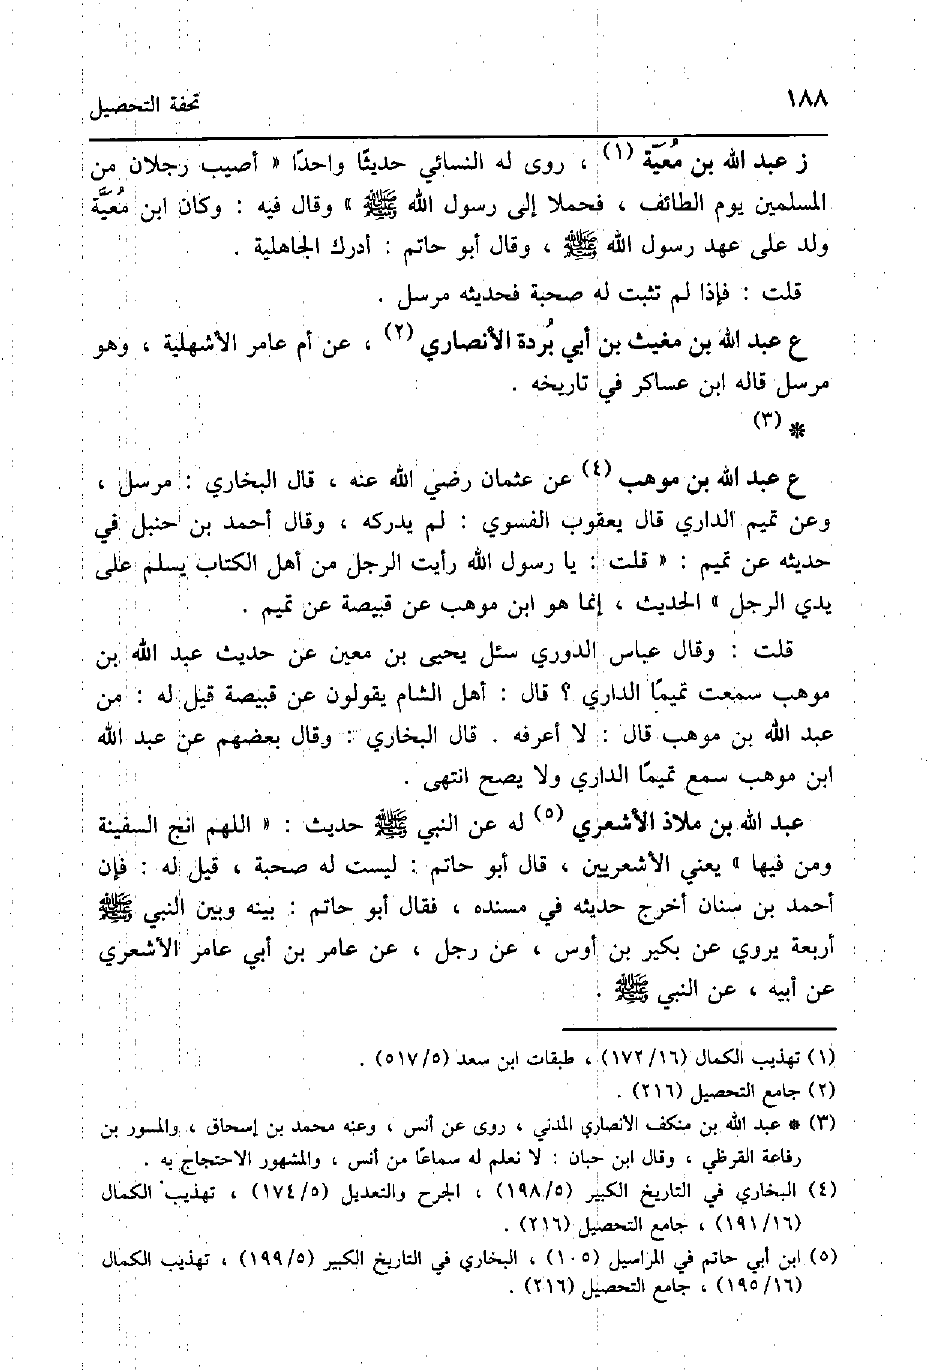 ١٨٨
تحفة التحصيل
ز عبد الله بن مُعيَّة (١) ، روى له النسائي حديثًا واحدًا « أصيب رجلان من
المسلمين يوم الطائف ، فحملا إلى رسول الله ﷺ » وقال فيه : وكان ابن مُعيَّة
ولد على عهد رسول الله ﷺ ، وقال أبو حاتم : أدرك الجاهلية .
قلت : فإذا لم تثبت له صحبة فحديثه مرسل .
ع عبد الله بن مغيث بن أبي بُردة الأنصاري (٢) ، عن أم عامر الأشهلية ، وهو
مرسل قاله ابن عساكر في تاريخه .
* (٣)
ع عبد الله بن موهب (٤) عن عثمان رضي الله عنه ، قال البخاري : مرسل ،
وعن تميم الداري قال يعقوب الفسوي : لم يدركه ، وقال أحمد بن حنبل في
حديثه عن تميم : « قلت : يا رسول الله رأيت الرجل من أهل الكتاب يسلم على
يدي الرجل » الحديث ، إنما هو ابن موهب عن قبيصة عن تميم .
قلت : وقال عباس الدوري سئل يحيى بن معين عن حديث عبد الله بن
موهب سمعت تميمًا الداري ؟ قال : أهل الشام يقولون عن قبيصة قيل له : من
عبد الله بن موهب قال : لا أعرفه . قال البخاري : وقال بعضهم عن عبد الله
ابن موهب سمع تميمًا الداري ولا يصح انتهى .
عبد الله بن ملاذ الأشعري (٥) له عن النبي ﷺ حديث : « اللهم انج السفينة
ومن فيها » يعني الأشعريين ، قال أبو حاتم : ليست له صحبة ، قيل له : فإن
أحمد بن سنان أخرج حديثه في مسنده ، فقال أبو حاتم : بينه وبين النبي ﷺ
أربعة يروي عن بكير بن أوس ، عن رجل ، عن عامر بن أبي عامر الأشعري
عن أبيه ، عن النبي ﷺ .
(١) تهذيب الكمال (١٧٢/١٦) ، طبقات ابن سعد (٥١٧/٥) .
(٢) جامع التحصيل (٢١٦) .
(٣) * عبد الله بن منكف الأنصاري المدني ، روى عن أنس ، وعنه محمد بن إسحاق ، والمسور بن
رفاعة القرظي ، وقال ابن حبان : لا نعلم له سماعًا من أنس ، والمشهور الاحتجاج به .
(٤) البخاري في التاريخ الكبير (١٩٨/٥) ، الجرح والتعديل (١٧٤/٥) ، تهذيب الكمال
(١٩١/١٦) ، جامع التحصيل (٢١٦) .
(٥) ابن أبي حاتم في المراسيل (١٠٥) ، البخاري في التاريخ الكبير (١٩٩/٥) ، تهذيب الكمال
(١٩٥/١٦) ، جامع التحصيل (٢١٦) .